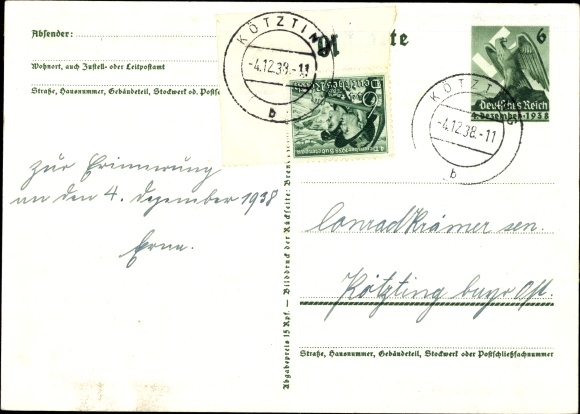 Absender:
Wohnort, auch Zustell- oder Leitpostamt
Straße, Hausnummer, Gebäudeteil, Stockwerk od. Postf
KÖTZTING
-4.12.38.-11
b
6
Deutsches Reich
4. Dezember 1938
KÖTZTING
-4.12.38.-11
b
Deutsches Reich
4. Dezember 1938 Sudetenland
zur Erinnerung
an den 4. Dezember 1938
Erna.
Conrad Krämer sen.
Kötzting bayr. Ost.
Straße, Hausnummer, Gebäudeteil, Stockwerk oder Postschließfachnummer
Abgabepreis 15 Rpf. — Bilddruck der Rückseite: